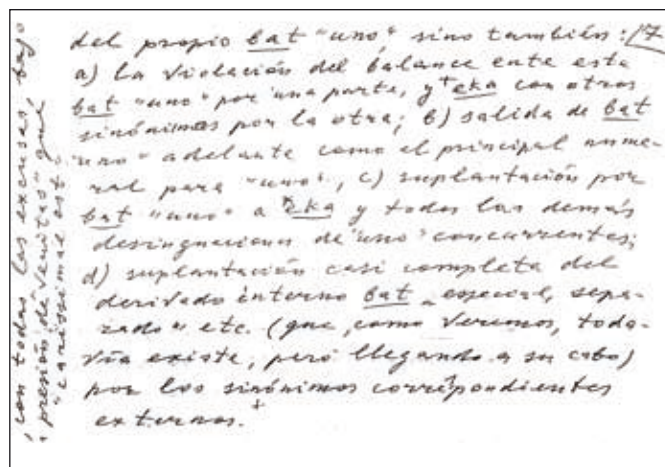 del propio bat "uno" sino también: 17
a) la violación del balance ente este
bat "uno" por una parte, y +eka con otros
sinónimos por la otra; b) salida de bat
"uno" adelante como el principal nume-
ral para "uno", c) suplantación por
bat "uno" a *eka y todas las demás
desingnacions de "uno" concurrentes;
d) suplantación casi completa del
derivado interno bat "especial, sepa-
rado" etc. (que, como veremos, toda-
vía existe, pero llegando a su cabo)
por los sinónimos corrispondientes
externos.+
, con todas las excusas, bajo
, presión de "veritas" que
"carissima est".